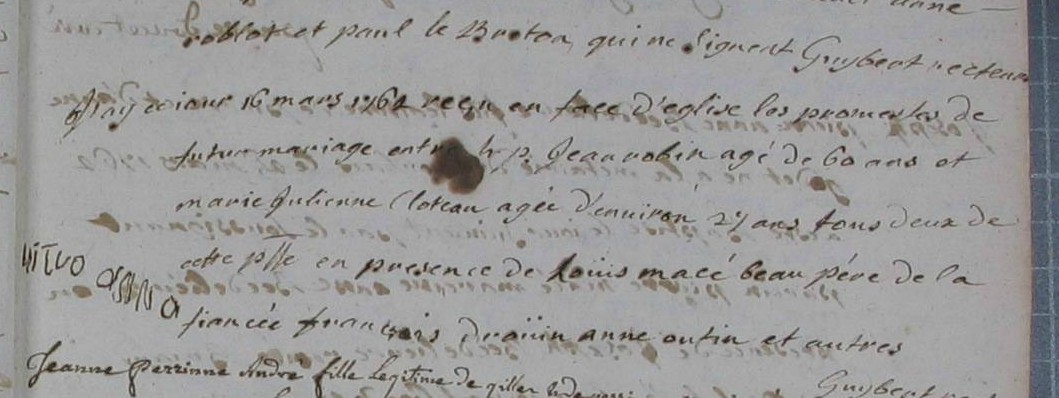 roblot et paul le Breton, qui ne signent Guybert recteur
J'ay ce jour 16 mars 1762 reçu en face d'eglise les promesses de
futur mariage entre h. p. Jean robin agé de 60 ans et
marie Julienne Cloteau agée d'environ 27 ans tous deux de
cette psse en presence de Loüis macé beau pére de la
fiancée françois droüin anne outin et autres
Guybert
Jeanne Perrinne André fille Legitime de gilles